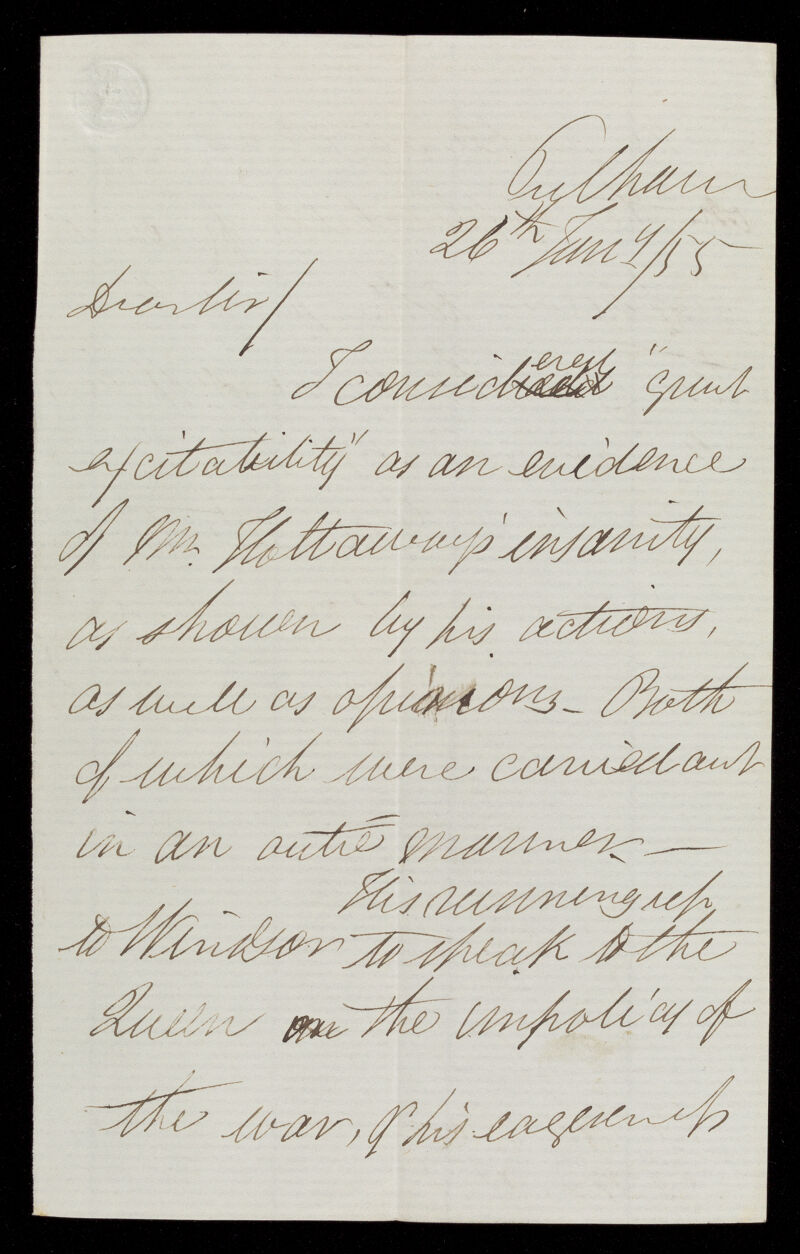 Fulham
26th Jany/55
Dear Sir/
I considered "great
excitability" as an evidence
of Mr. Hottaway's insanity,
as shown by his actions,
as well as opinions - Both
of which were carried out
in an outré manner. —
His running up
to Windsor to speak to the
Queen on the impolicy of
the war, & his eagerness